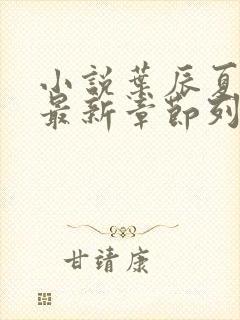 小説葉辰夏
最新章節列
甘靖康